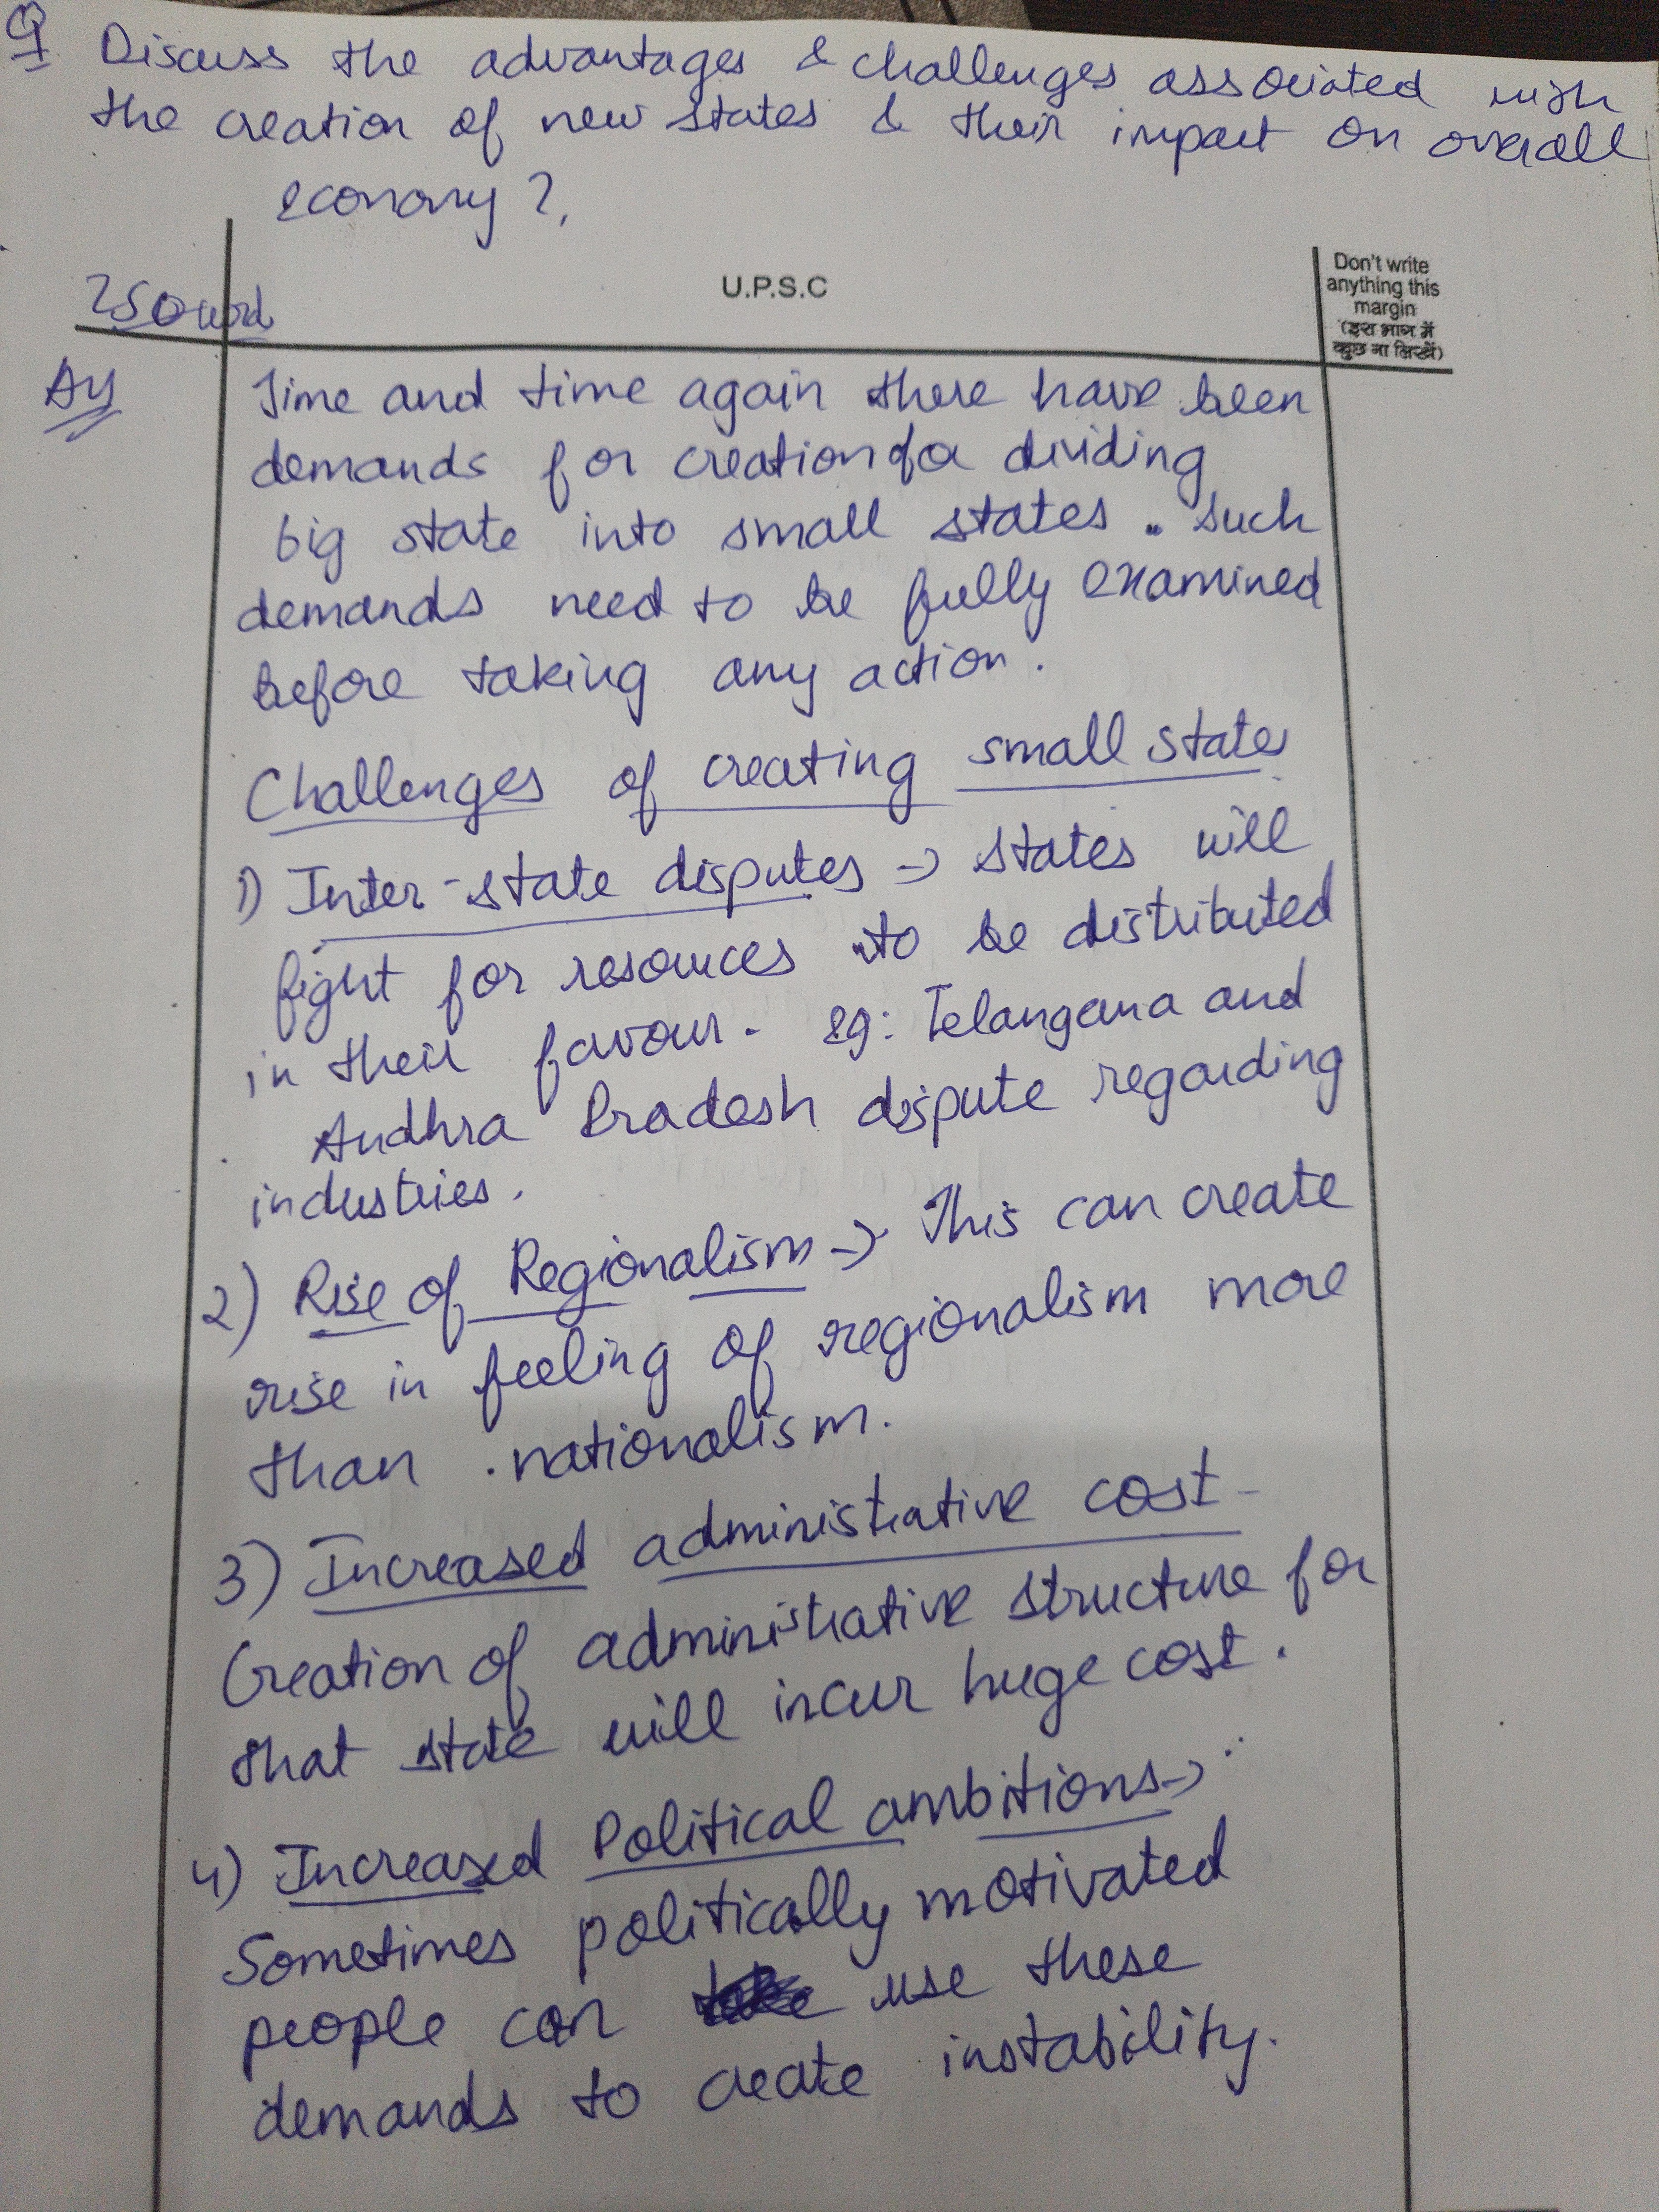 Q Discuss the advantages & challenges associated with
the creation of new states & their impact on overall
economy?
250 word
U.P.S.C
Don't write
anything this
margin
(इस भाग में
कुछ ना लिखें)
Time and time again there have been
demands for creation of a dividing
big state into small states. Such
demands need to be fully examined
before taking any action.
Challenges of creating small states
1) Inter-state disputes → states will
fight for resources to be distributed
in their favour. eg: Telangana and
Andhra Pradesh dispute regarding
industries.
2) Rise of Regionalism → This can create
rise in feeling of regionalism more
than nationalism.
3) Increased administrative cost -
Creation of administrative structure for
that state will incur huge cost.
4) Increased Political ambitions →
Sometimes politically motivated
people can use these
demands to create instability.